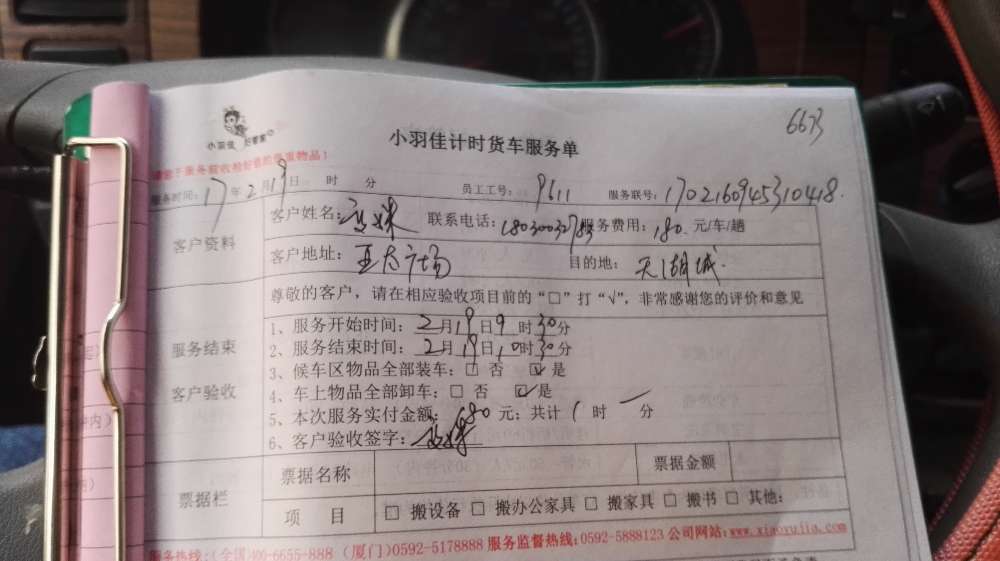 6673
小羽佳 好管家
小羽佳计时货车服务单
服务时间：17年2月19日 时 分 员工工号：9611 服务联号：1702160945310418.
客户资料
客户姓名： 联系电话： 服务费用：180 元/车/趟
客户地址： 广场 目的地：天湖城
尊敬的客户，请在相应验收项目前的“□”打“√”，非常感谢您的评价和意见
服务结束
客户验收
1、服务开始时间：2月19日9时30分
2、服务结束时间：2月19日10时30分
3、候车区物品全部装车：□ 否 ☑ 是
4、车上物品全部卸车：□ 否 ☑ 是
5、本次服务实付金额：680元；共计1时 一 分
6、客户验收签字：
票据栏
票据名称 票据金额
项 目 □ 搬设备 □ 搬办公家具 □ 搬家具 □ 搬书 □ 其他：
服务热线：（全国）400-6655-888 （厦门）0592-5178888 服务监督热线：0592-5888123 公司网站：www.xiaoyujia.com